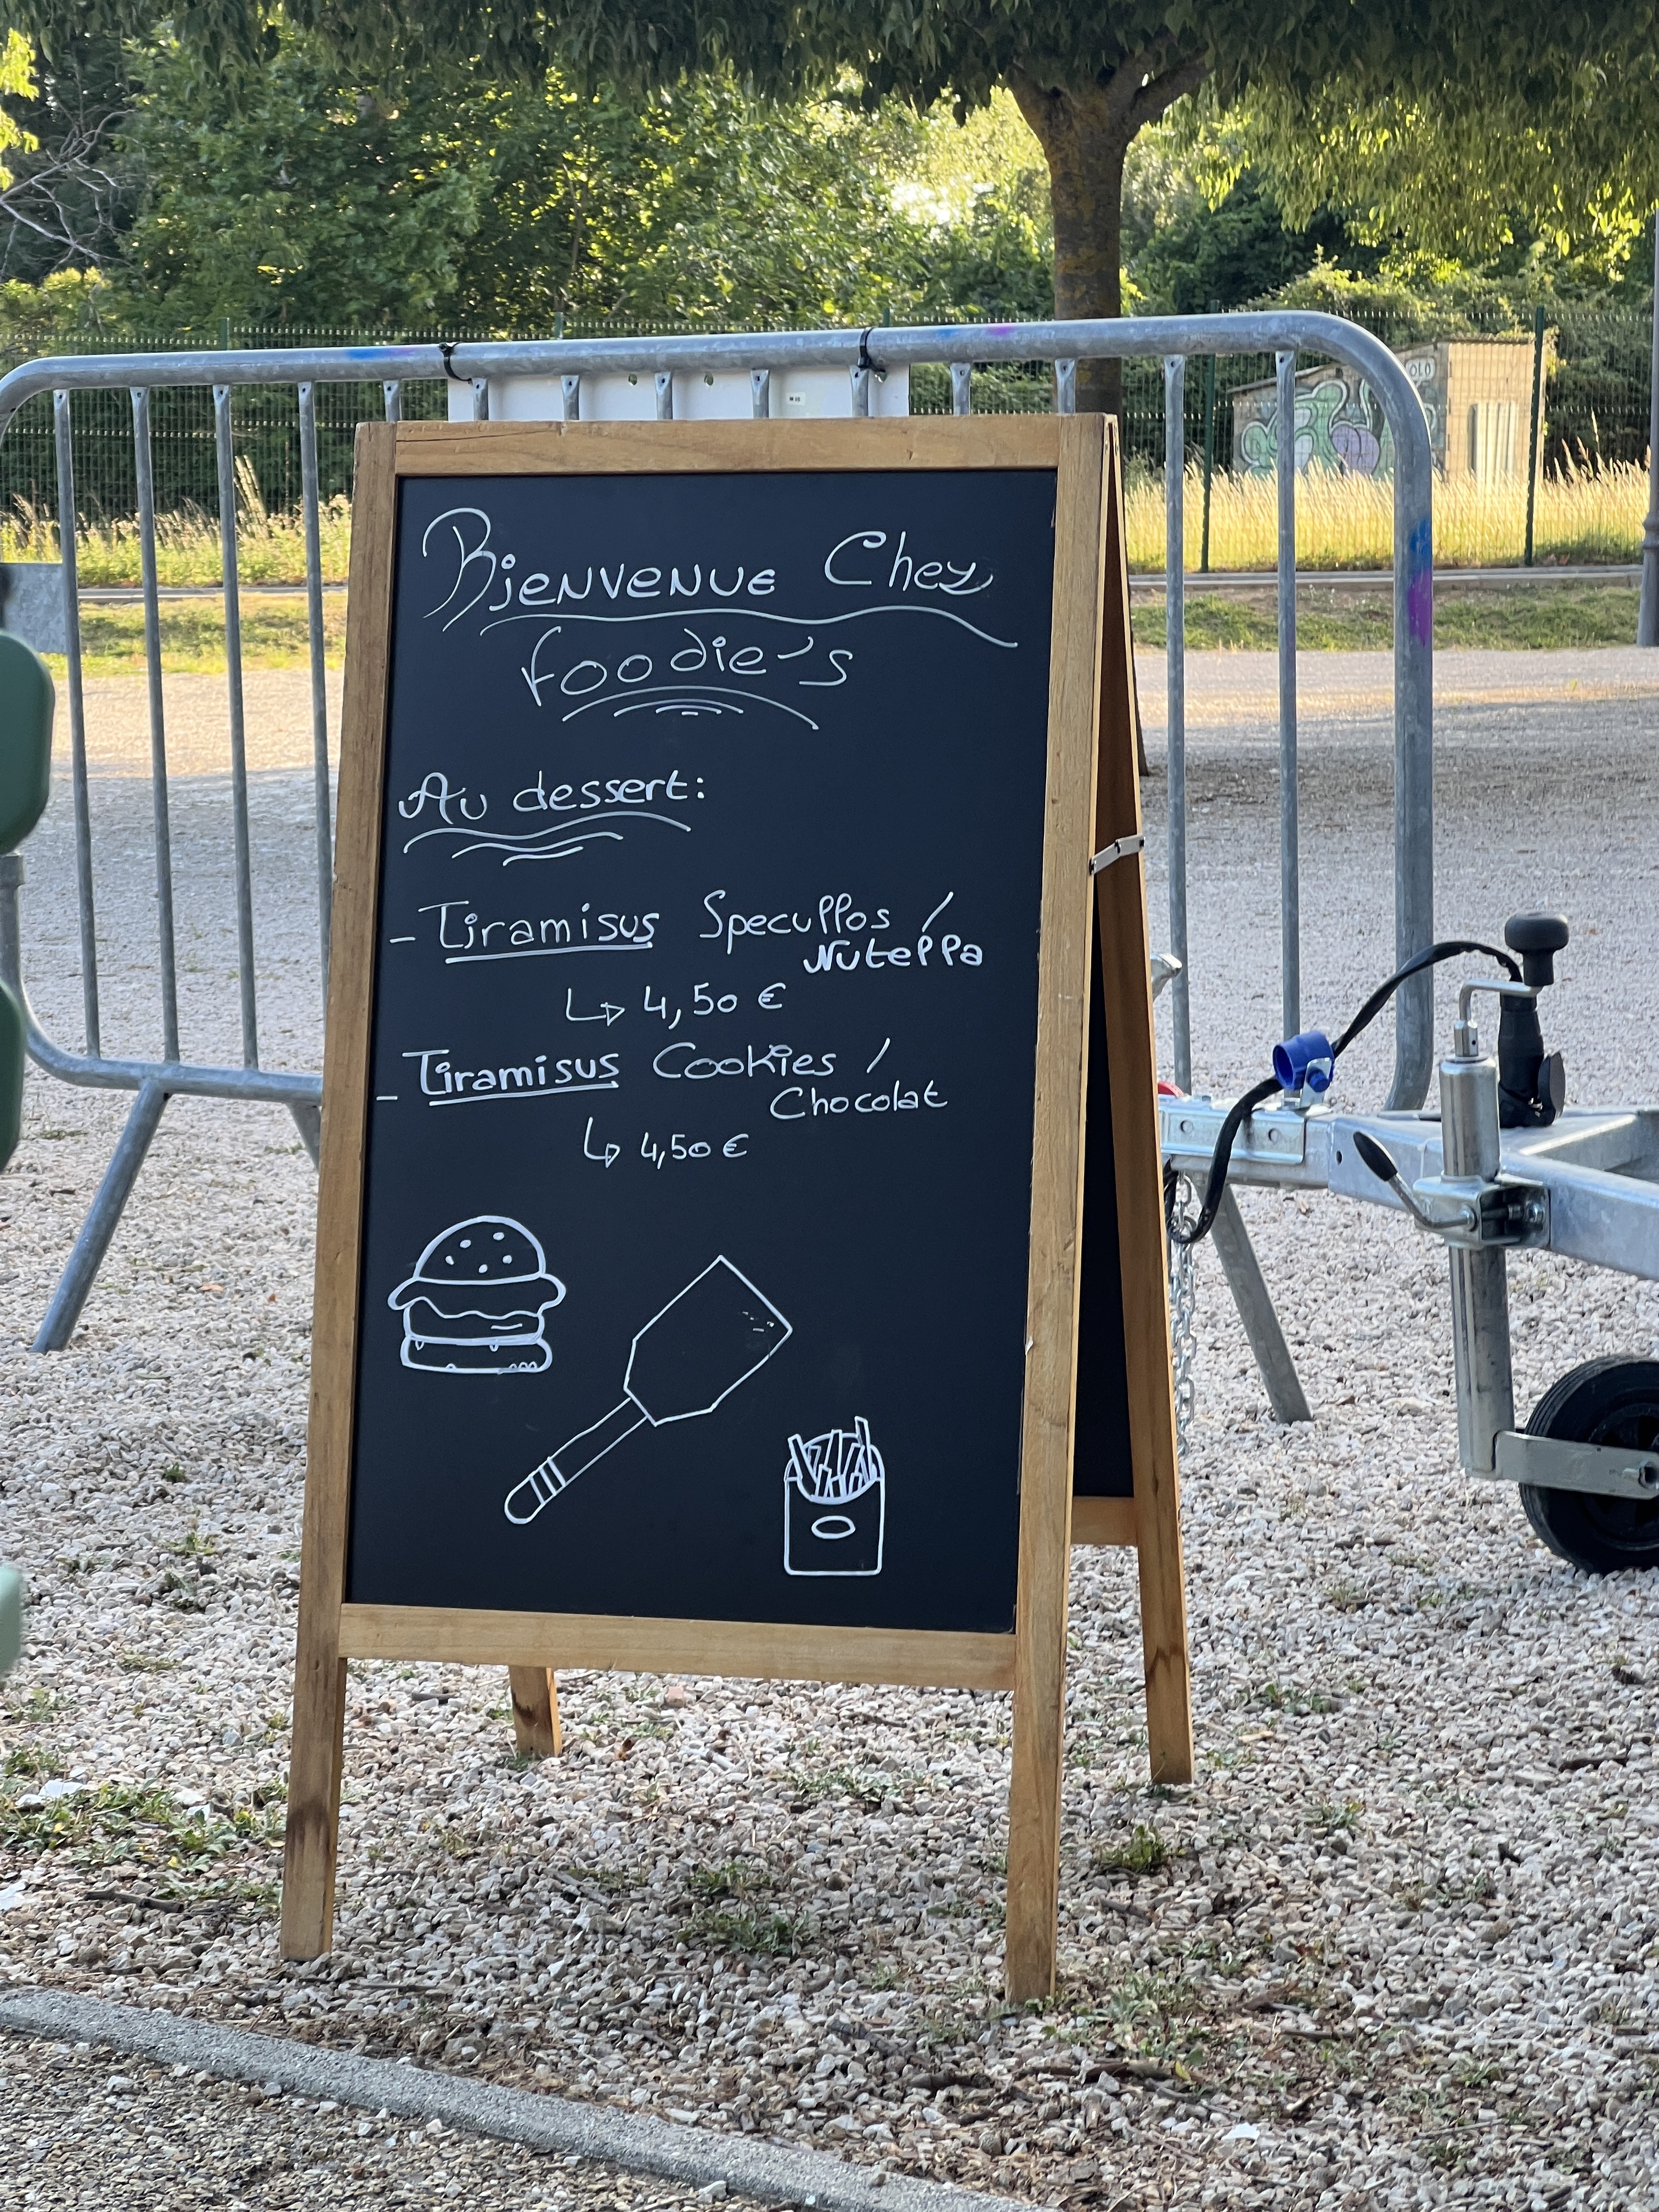 Bienvenue Chez
foodie's
Au dessert:
- Tiramisus Specullos /
Nutella
↳ 4,50 €
- Tiramisus Cookies /
Chocolat
↳ 4,50 €